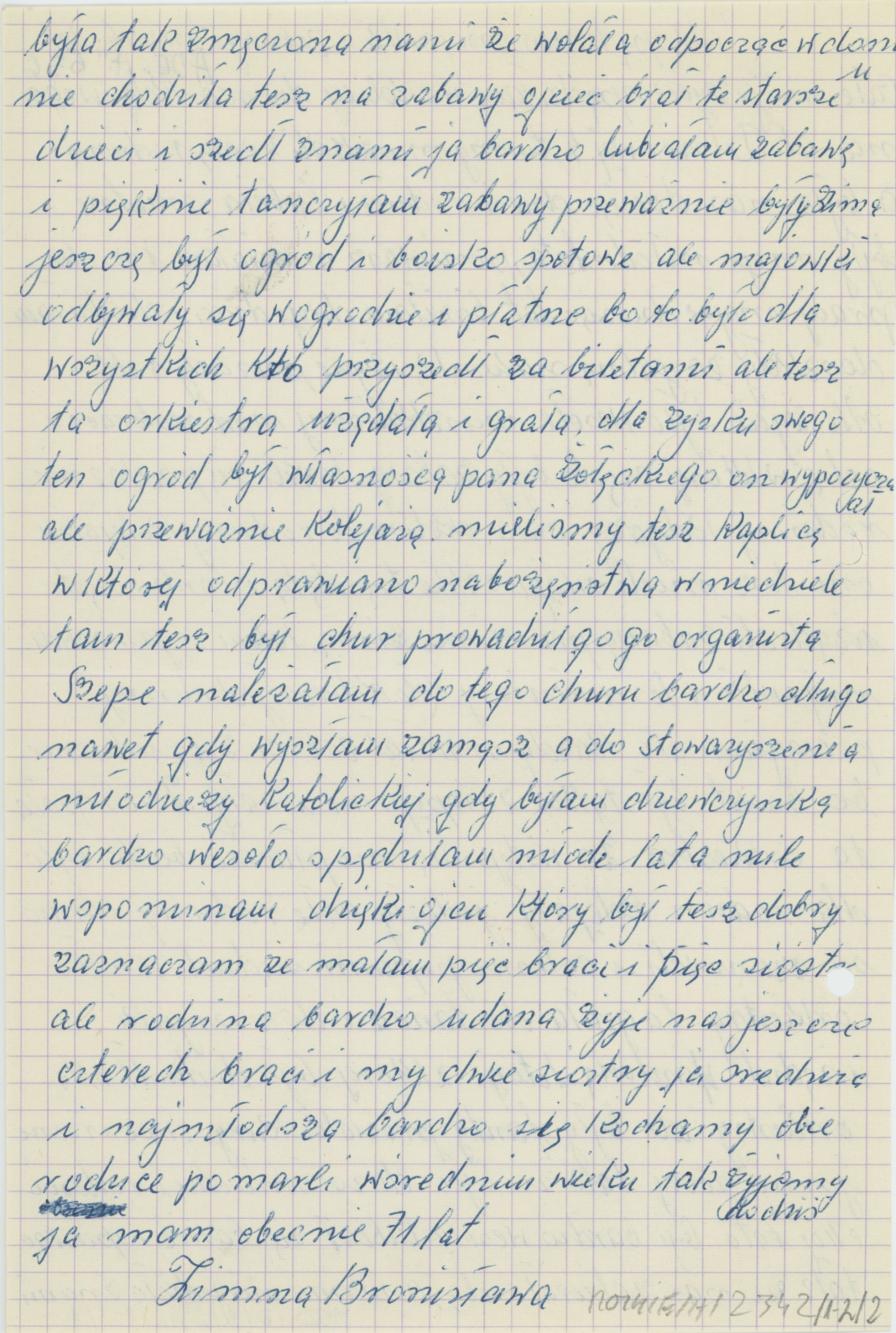 była tak zmęczona nami że wolała odpocząć w domu
nie chodziła tesz na zabawy ojciec brał te starsze
dzieci i szedł znami ja bardzo lubiałam zabawę
i pięknie tanczyłam zabawy przeważnie były zimą
jeszczę był ogród i boisko spotowe ale majowki
odbywały się wogrodzie i płatne bo to było dla
wszystkich kto przyszedł za biletami ale tesz
ta orkiestra użędała i grała, dla zysku swego
ten ogród był własnoscą pana Żołęckiego on wypozyczał
ale przeważnie Kolejarzą. mielismy tesz Kaplicę
w Której odprawiano nabożęnstwa w niedziele
tam tesz był chur prowadził go go organista
Szepe należałam do tego churu bardzo długo
nawet gdy wyszłam zamąsz a do stowaryszenia
młodzieży Katolickiej gdy byłam dziewczynką
bardzo wesoło spędziłam młode lata mile
wspominam dzięki ojcu Który był tesz dobry
zaznaczam że małam pięć braci i pięc sióstr
ale rodzina bardzo udana żyje nas jeszcze
czterech braci i my dwie siostry ja srednia
i najmłodsza bardzo się Kochamy obie
rodzice pomarli wsrednim wieku tak żyjemy
dodziś
ja mam obecnie 71 lat
Zimna Bronisława
2342/1-2/2